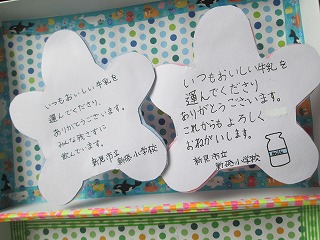 いつもおいしい牛乳を
運んでくださり、
ありがとうございます。
みんな残さずに
飲んでいます。
新見市立
新砥小学校
いつもおいしい牛乳を
運んでくださり
ありがとうございます。
これからもよろしく
おねがいします。
新見市立
新砥小学校